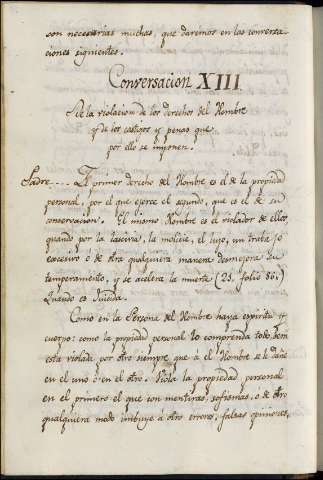 son necesarias muchas, que daremos en las conversa
ciones siguientes.
Conversacion XIII
De la violacion de los derechos del Hombre
y de los castigos y penas que
por ello se imponen.
Padre.... El primer derecho del Hombre es el de la propiedad
personal, por el que ejerce el segundo, que es el de su
conservacion. El mismo Hombre es el violador de ellos,
quando por la lascivia, la molicie, el lujo, un trabajo
excesivo ó de otra qualquiera manera desmejora su
temperamento, y se acelera la muerte (25. folio 86.)
Quando es Suicida.
Como en la Persona del Hombre haya espiritu y
cuerpo: como la propiedad personal lo comprenda todo,
esta violada por otro siempre que a el Hombre se le dañe
en el uno ó en el otro. Viola la propiedad personal
en el primero el que con mentiras, sofismas, o de otro
qualquiera modo imbuye á otro errores, falsas opiniones,